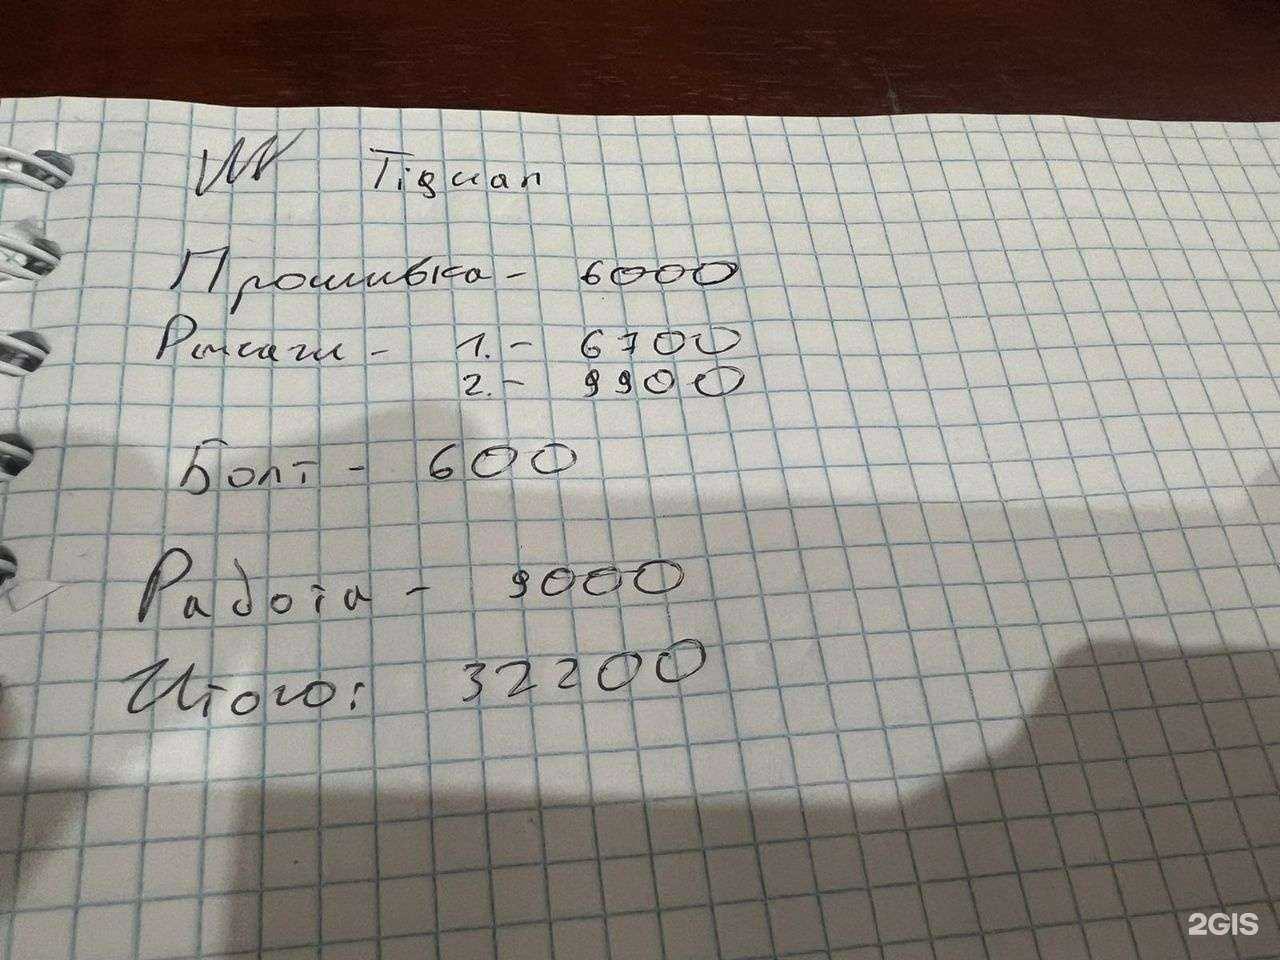 VW Tiguan
Прошивка - 6000
Рычаги - 1. - 6700
2. - 9900
Болт - 600
Работа - 9000
Итого: 32200
2GIS